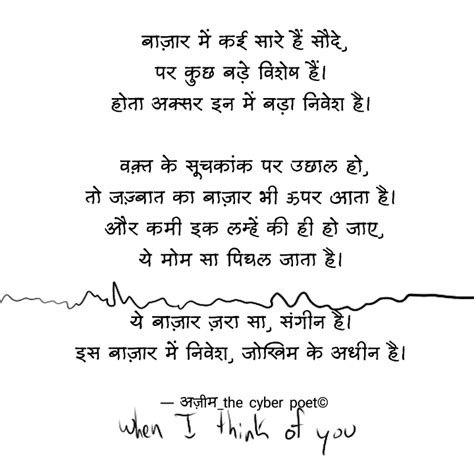 बाज़ार में कई सारे हैं सौदे,
पर कुछ बड़े विशेष हैं।
होता अक्सर इन में बड़ा निवेश है।
वक़्त के सूचकांक पर उछाल हो,
तो जज़्बात का बाज़ार भी ऊपर आता है।
और कमी इक लम्हें की ही हो जाए,
ये मोम सा पिघल जाता है।
ये बाज़ार ज़रा सा, संगीन है।
इस बाज़ार में निवेश, जोखिम के अधीन है।
— अज़ीम_the cyber poet©
when I think of you